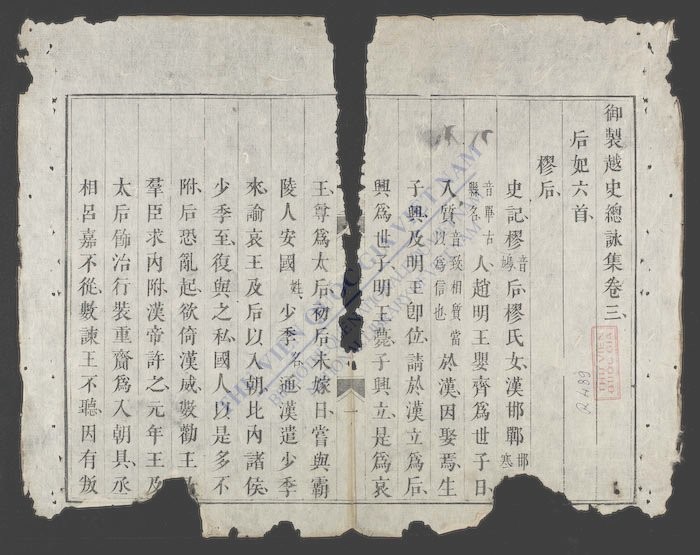 御製越史總詠集卷三
后妃六首
樛后
史記樛音鳩后樛氏女漢邯鄲邯音寒
音單古縣名人趙明王嬰齊爲世子日
入質音致相質當以爲信也於漢因娶焉生
子興及明王卽位請於漢立爲后
興爲世子明王薨子興立是爲哀
王尊爲太后初后未嫁日嘗與霸
陵人安國姓少季名通漢遣少季
來諭哀王及后以入朝比內諸侯
少季至復與之私國人以是多不
附后恐亂起欲倚漢威數勸王
羣臣求內附漢帝許之元年王及
太后飾治行裝重齎爲入朝具丞
相呂嘉不從數諫王不聽因有叛
THƯ VIỆN QUỐC GIA
R.489
THƯ VIỆN QUỐC GIA VIỆT NAM